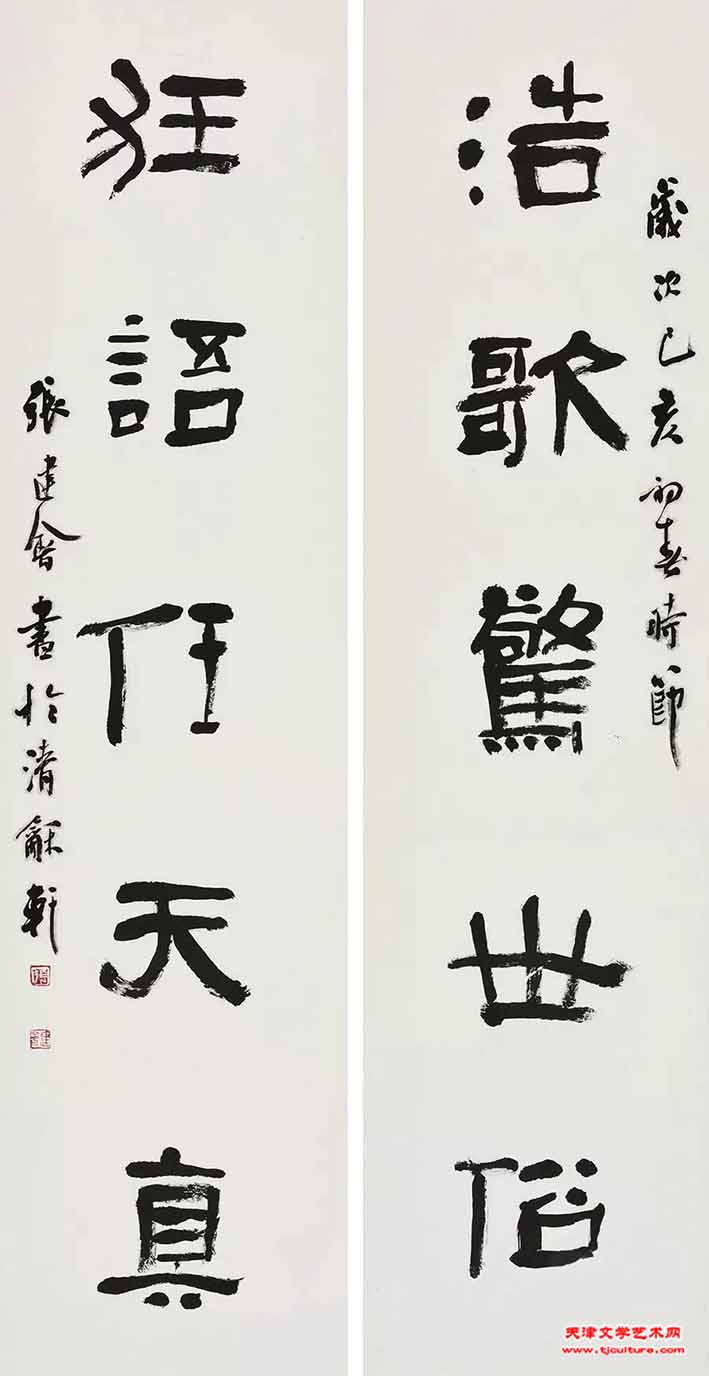 歲次己亥初春時節
浩歌驚世俗
狂語任天真
張建會書於清龢軒
天津文学艺术网
www.tjculture.com